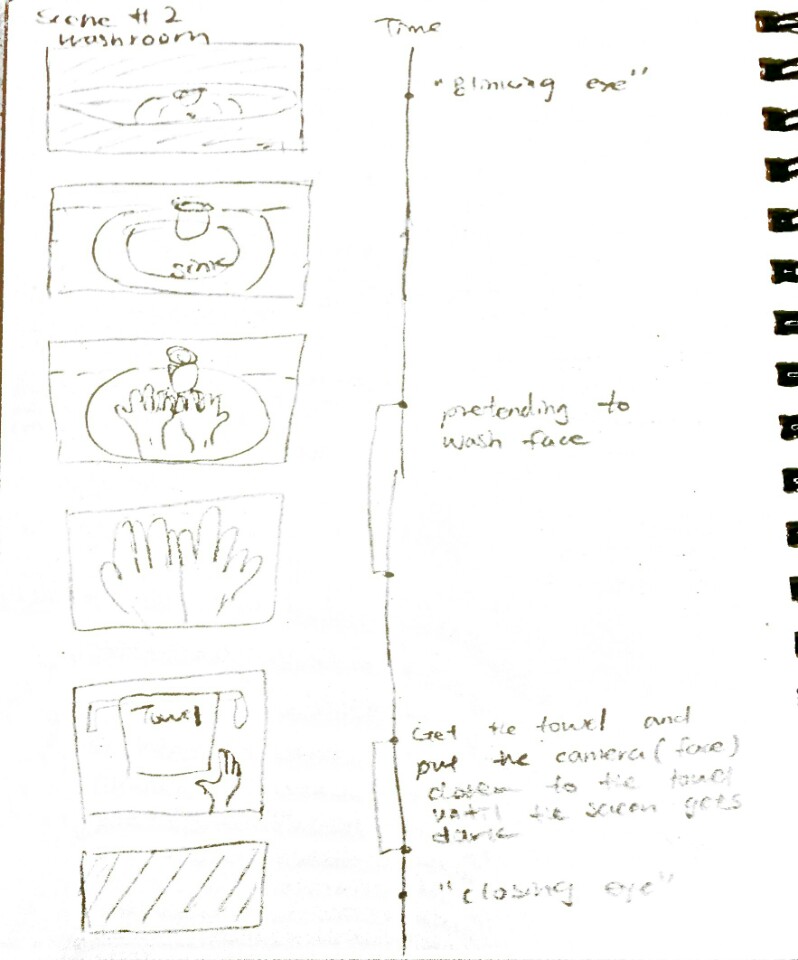 Scene # 2
washroom
Time
"glincing eye"
sink
pretending to
wash face
Towel
Get the towel and
put the camera (face)
closer to the towel
until the screen gets
dark
"closing eye"